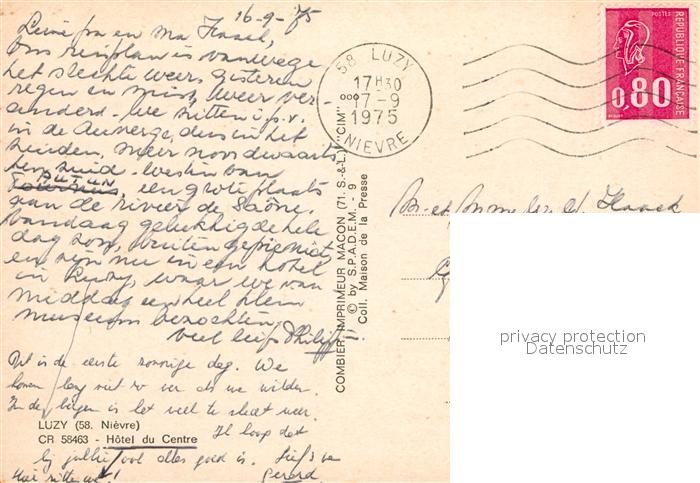 16-9-'75
Lieve pa en ma Haack,
Ons reisplan is vanwege
het slechte weer, gisteren
regen en mist, weer ver-
anderd. We zitten i.p.v.
in de Auvergne, dus in het
zuiden, meer noordwaarts
ten zuid-westen van
AUTUN
Tournus, een grote plaats
aan de rivier de Saône.
Vandaag gelukkig de hele
dag zon, buiten gepicknickt
en zijn nu in een hotel
in Luzy, waar we van
middag een heel klein
museum bezochten,
veel liefs Philipp
Dit is de eerste zonnige dag. We
komen lang niet zo ver als we wilden.
In de bergen is het veel te slecht weer.
Ik hoop dat
bij jullie ook alles goed is. Liefs van
Gerard
Hier zitten we!
LUZY (58. Nièvre)
CR 58463 - Hôtel du Centre
COMBIER IMPRIMEUR MACON (71. S.-&-L.) "CIM"
© by S.P.A.D.E.M. - 9
Coll. Maison de la Presse
58 LUZY
17H30
17-9
1975
NIEVRE
POSTES
REPUBLIQUE FRANÇAISE
0,80
Haack
privacy protection
Datenschutz